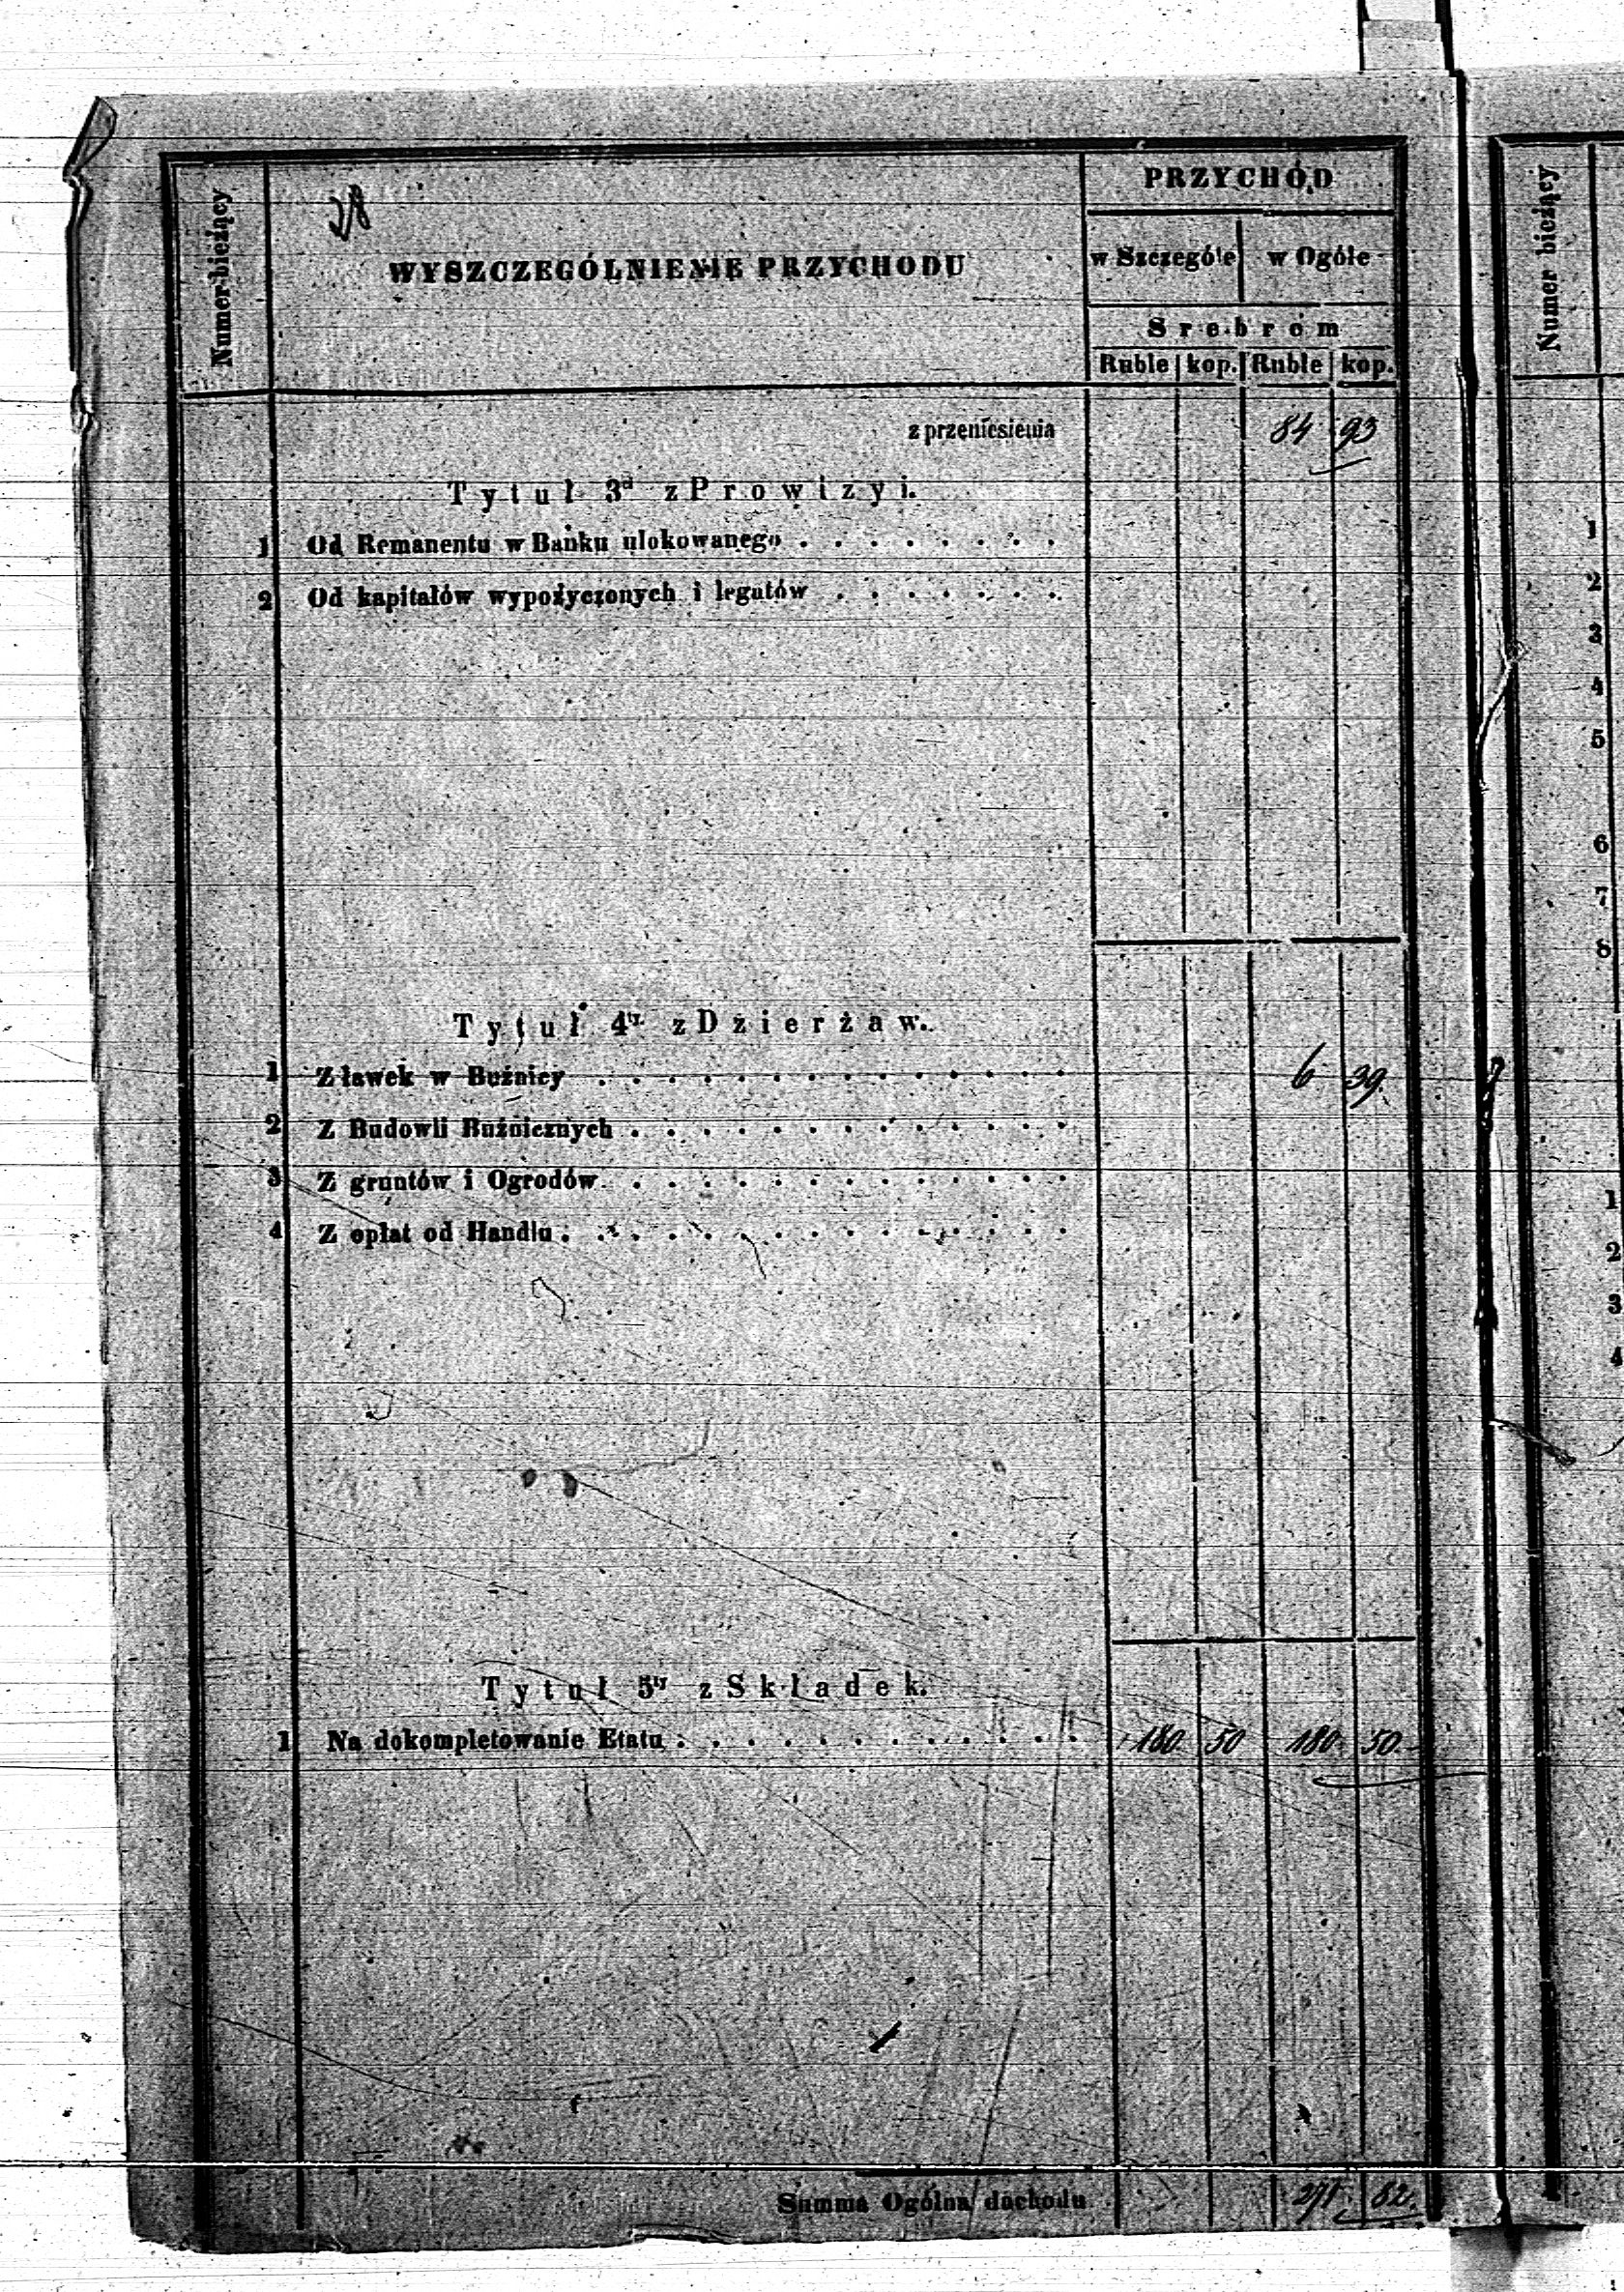 28
Numer bieżący
WYSZCZEGÓLNIENIE PRZYCHODU
PRZYCHÓD
w Szczególe w Ogóle
Srebrom
Ruble kop. Ruble kop.
z przeniesienia 84 93
Tytuł 3ci z Prowizyi.
1 Od Remanentu w Banku ulokowanego . . . . . . . .
2 Od kapitałów wypożyczonych i legatów . . . . . . .
Tytuł 4ty z Dzierżaw.
1 Z ławek w Bużnicy . . . . . . . . . . . . . . 6 39
2 Z Budowli Bużnicznych . . . . . . . . . . . . .
3 Z gruntów i Ogrodów . . . . . . . . . . . . .
4 Z opłat od Handlu . . . . . . . . . . . . . . .
Tytuł 5ty z Składek.
1 Na dokompletowanie Etatu . . . . . . . . . . . . 180 50 180 50
Summa Ogólna dochodu 271 82
Numer bieżący
1
2
3
4
5
6
7
8
1
2
3
4